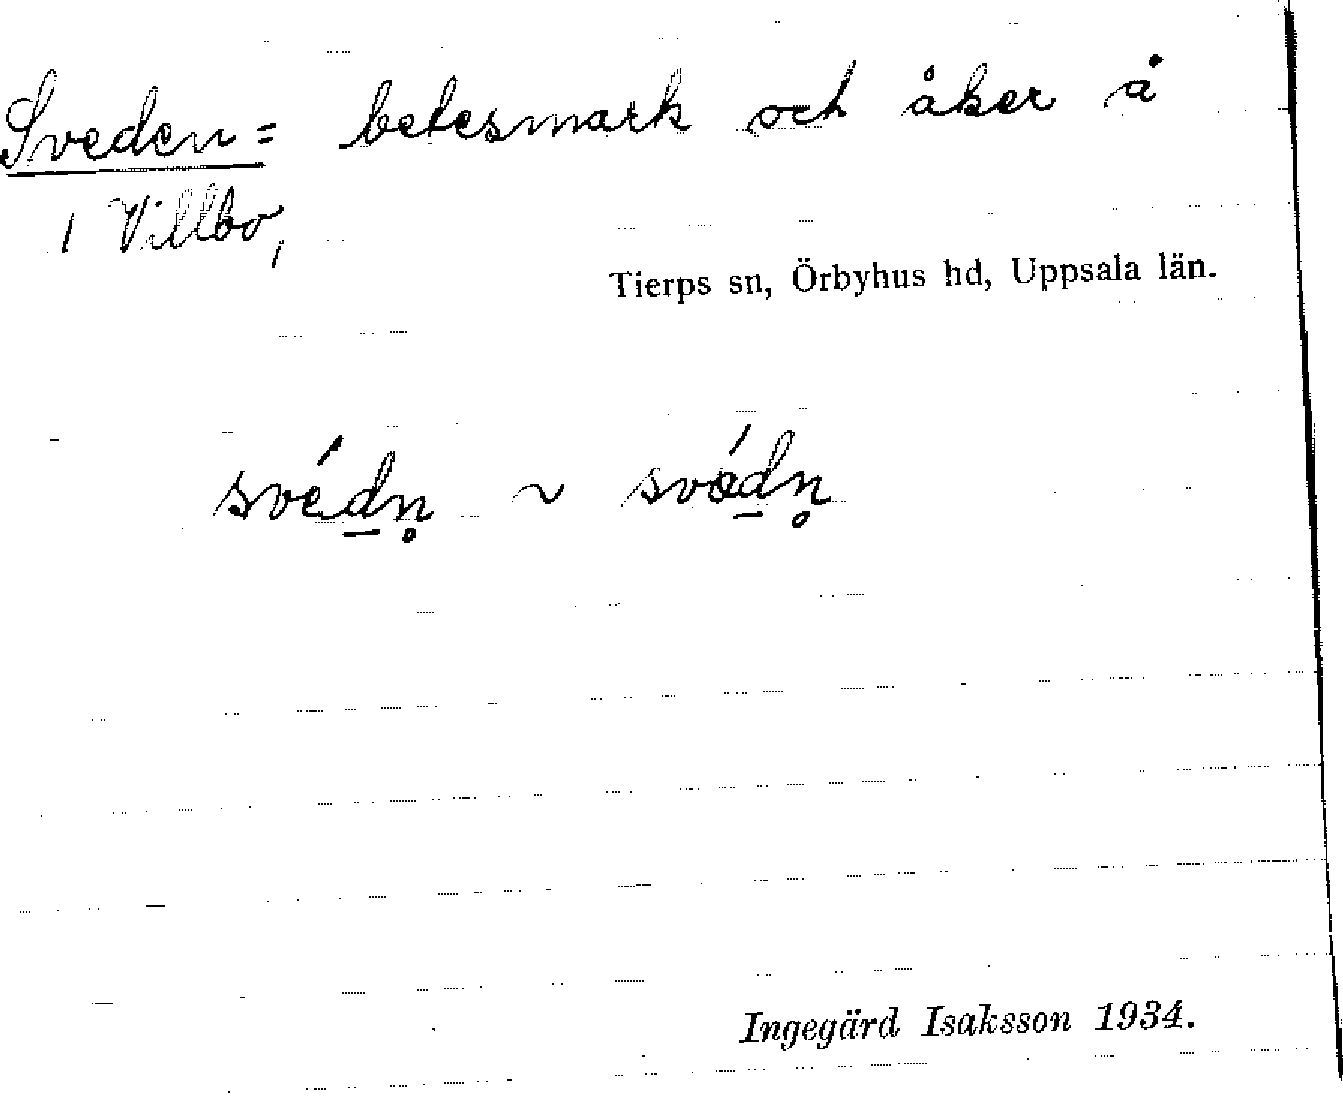 Sveden = betesmark och åker å
1 Villbo,
Tierps sn, Örbyhus hd, Uppsala län.
své̱dn̥ ~ svǿ̱dn̥
Ingegärd Isaksson 1934.